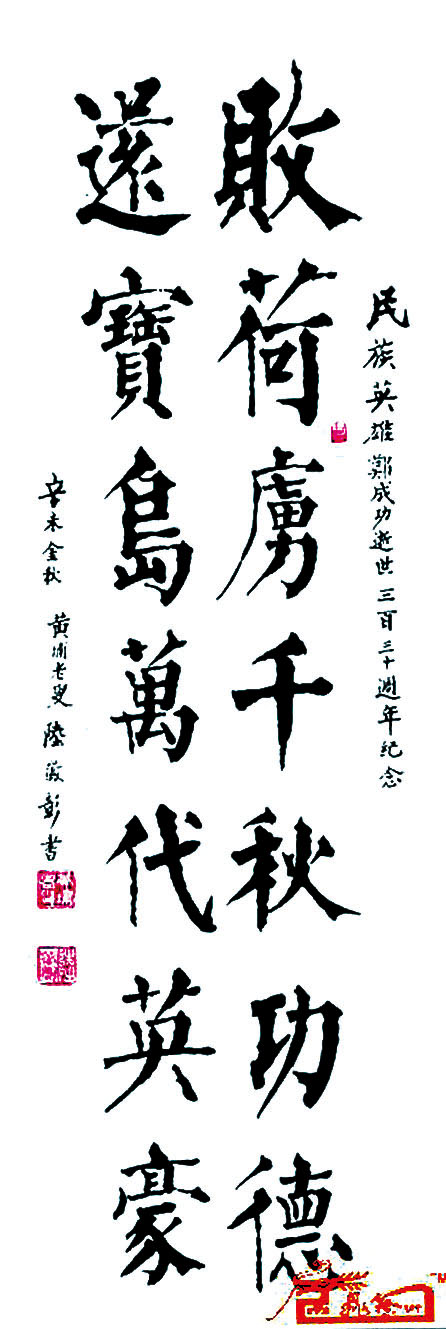 民族英雄鄭成功逝世三百三十週年纪念
敗荷虜千秋功德
還寶島萬代英豪
辛未金秋 黄埔老叟 陸 彭书